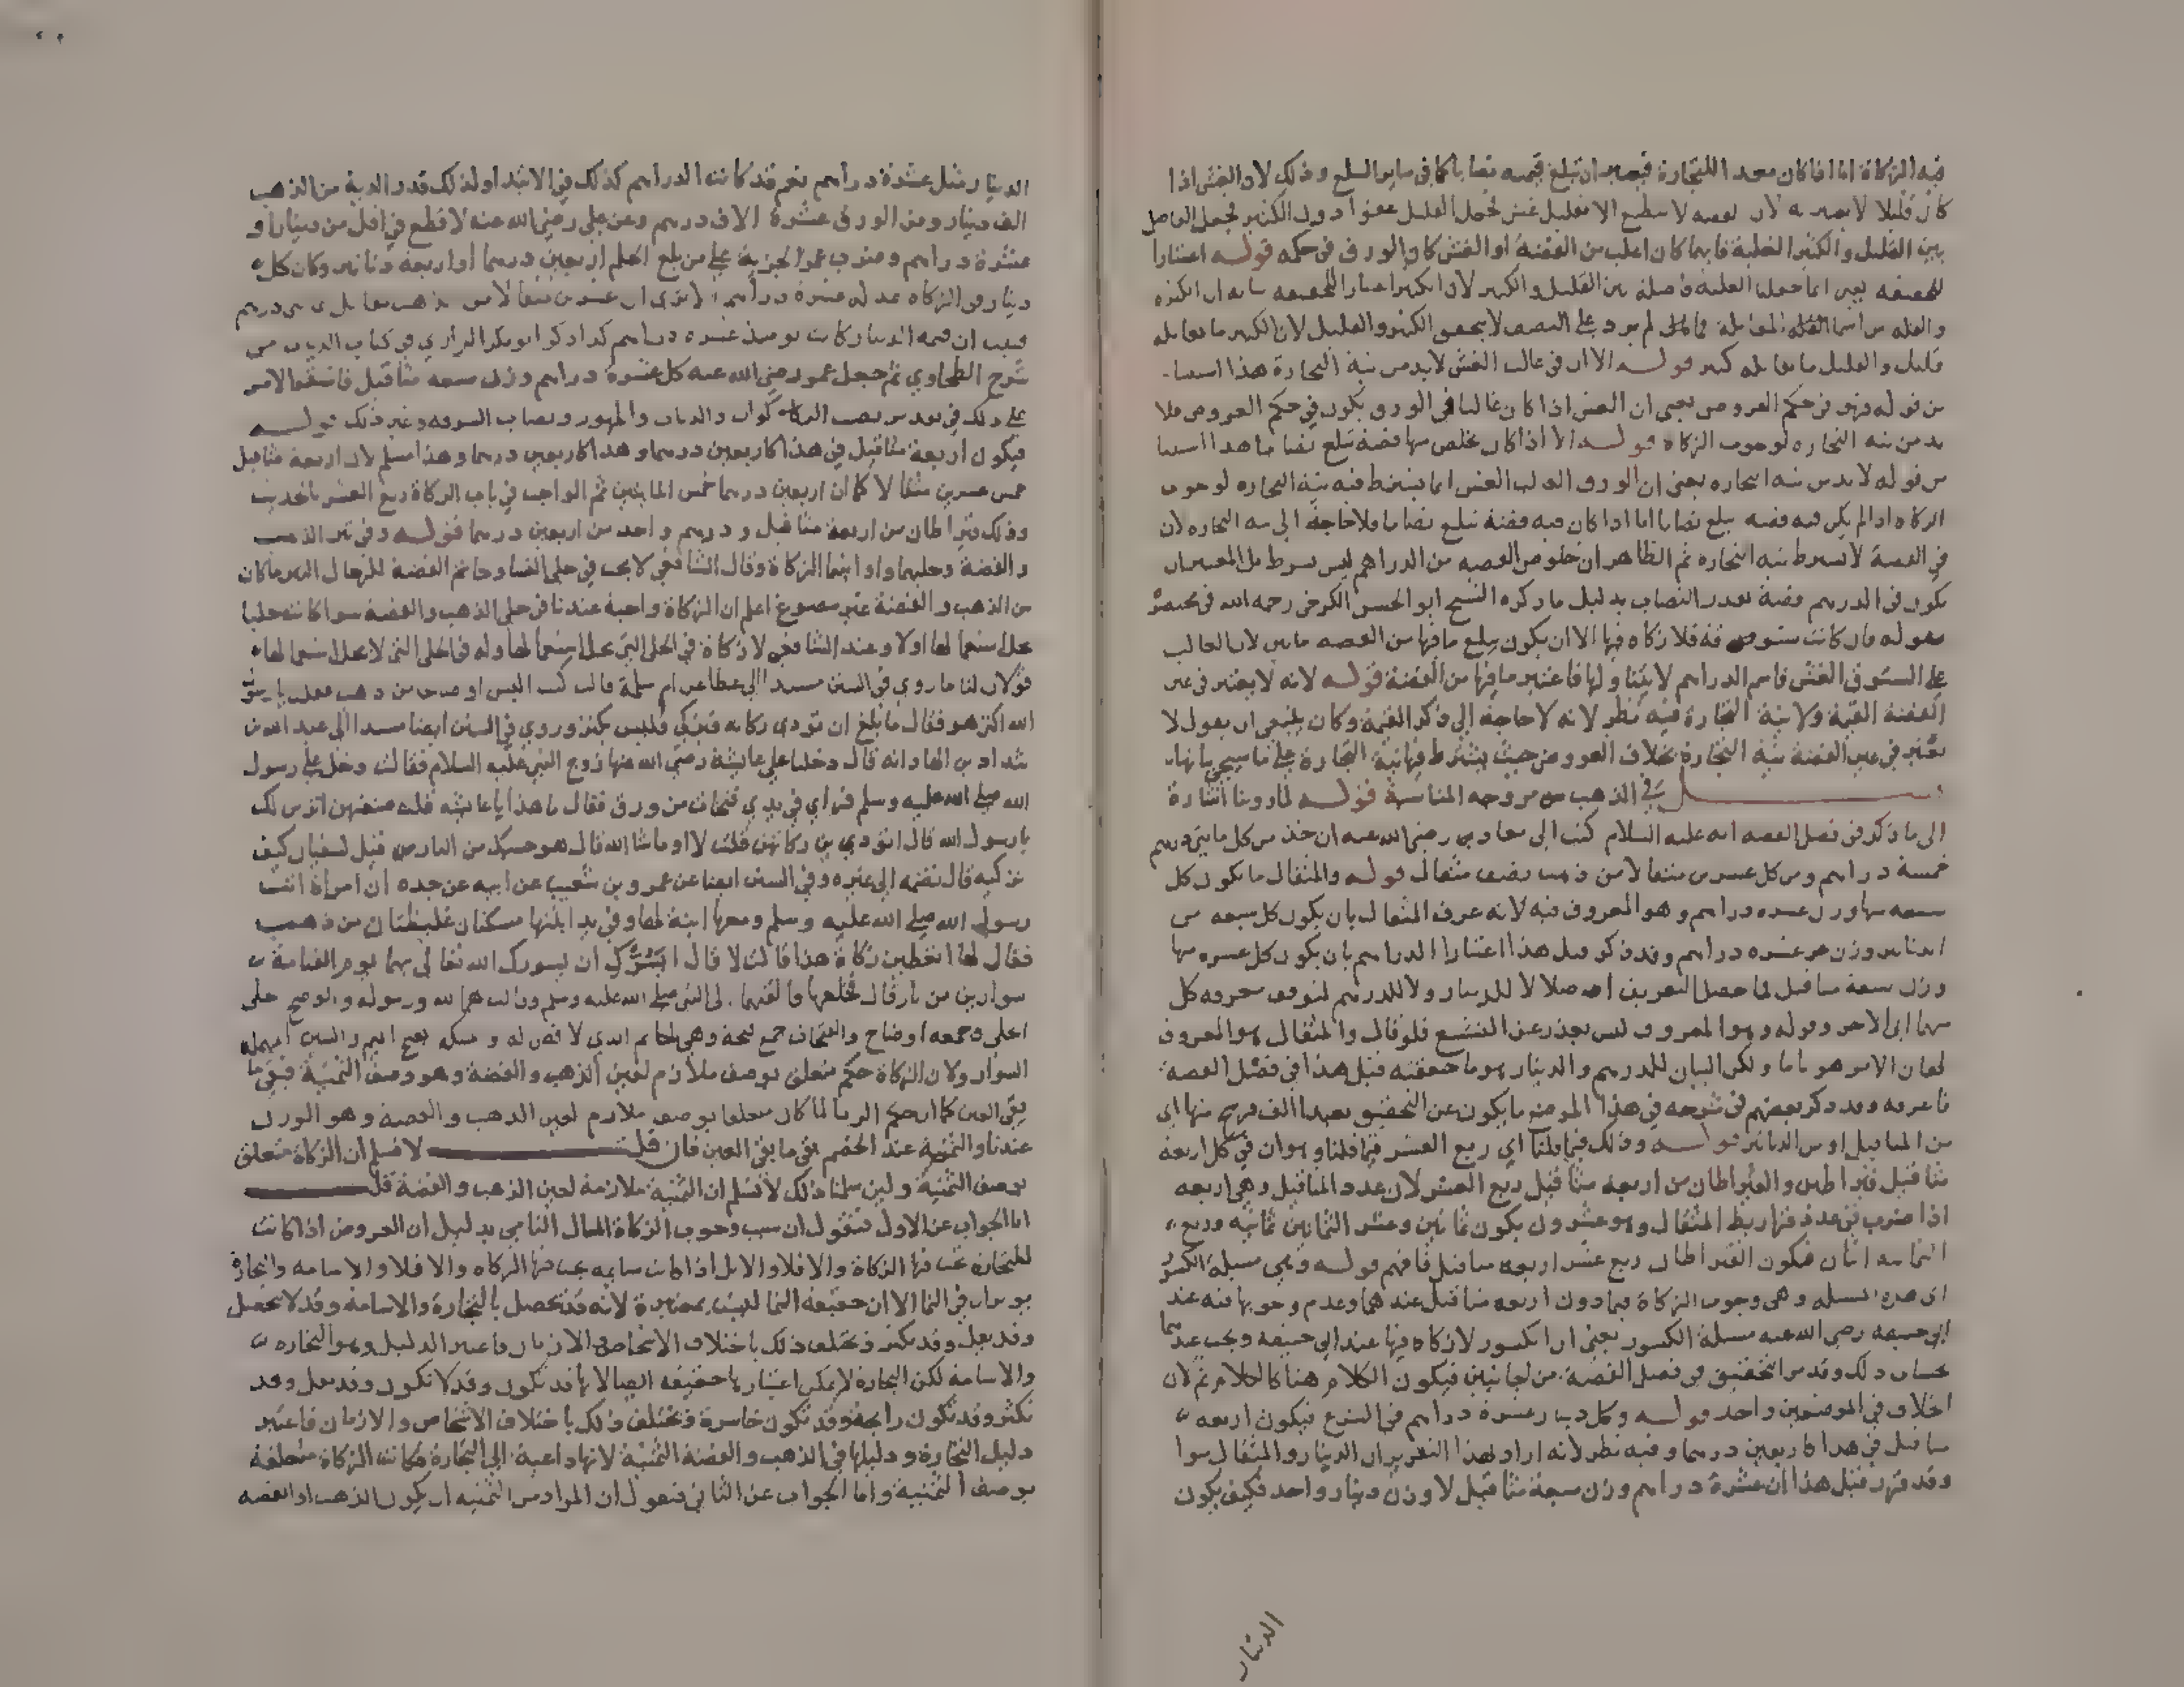 فيه الزكاة اما اذا كان معد اللتجارة فيعتبر ان تبلغ قيمته نصابا كما في ساير السلع وذلك لان الغش اذا
كان قليلا لا يعتبر به لان الفضة لا تنطبع الا بقليل غش فجعل القليل عفوا دون الكثير فجعل الفاصل
بين القليل والكثير الغلبة فايهما كان اغلب من الفضة او الغش كان الورق في حكمه قوله اعتبارا
للحقيقة يعني انما جعلنا الغلبة فاصلة بين القليل والكثير لان الكثير اعتبارا للحقيقة
والقلة من اسما المقابلة فمالم يزد على النصف لا يتحقق الكثير والقليل لان الكثير ما يقابله
قليل والقليل ما يقابله كثير قوله الا ان في غالب الغش لابد من نية التجارة هذا استثنا
من قوله فهو في حكم العروض يعني ان الغش اذا كان غالبا في الورق يكون في حكم العروض فلا
بد من نية التجارة لوجوب الزكاة قوله الا اذا كان يخلص منها فضة تبلغ نصابا هذا استثنا
من قوله لابد من نية التجارة يعني ان الورق الغالب الغش انما يشترط فيه نية التجارة لوجوب
الزكاة اذا لم يكن فيه فضة تبلغ نصابا اما اذا كان فيه فضة تبلغ نصابا فلا حاجة الى نية التجارة لان
في الفضة لا يشترط نية التجارة ثم الظاهر ان خلوص الفضة من الدراهم ليس بشرط بل المعتبر ان
يكون في الدرهم فضة بقدر النصاب بدليل ما ذكره الشيخ ابو الحسن الكرخي رحمه الله في مختصره
بقوله فان كانت ستوقة فلا زكاة فيها الا ان يكون يبلغ ما فيها من الفضة مايتين لان الغالب
على الستوق الغش فاسم الدراهم لا يتناولها فاعتبر ما فيها من الفضة قوله لانه لا يعتبر في عين
الفضة القيمة ولا نية التجارة فيه نظر لانه لا حاجة الى ذكر القيمة وكان ينبغي ان يقول لا
يعتبر في عين الفضة نية التجارة بخلاف العروض حيث يشترط فيها نية التجارة على ما سيجي بيانها
فصل في الذهب مر وجه المناسبة قوله لما روينا اشارة
الى ما ذكر في فصل الفضة انه عليه السلام كتب الى معاذ رضي الله عنه ان خذ من كل مايتي درهم
خمسة دراهم ومن كل عشرين مثقالا من ذهب نصف مثقال قوله والمثقال ما يكون كل
سبعة منها وزن عشرة دراهم وهو المعروف فيه لانه عرف المثقال بان يكون كل سبعة من
الدنانير وزن عشرة دراهم وقد ذكر قبل هذا اعتبار الدراهم بان يكون كل عشرة منها
وزن سبعة مثاقيل فما حصل التعريف اصلا لا للدينار ولا للدرهم لتوقف معرفة كل
منهما الى الاخر وقوله وهو المعروف ليس بعذر عن التشنيع فلو قال والمثقال هو المعروف
لكان الامر هو ماما ولكن البيان للدرهم والدينار هو ما حققته قبل هذا في فصل الفضة
فاعرفه وقد ذكر بعضهم في شرحه في هذا الموضع ما يكون عن التحقيق بعيدا
من المثاقيل او من الدنانير قوله وذلك فيما قلنا اي ربع العشر فيما قلنا وهو ان في كل اربعة
مثاقيل قيراطين والقيراطان من اربعة مثاقيل ربع العشر لان عدد المثاقيل وهي اربعة
اذا ضرب في عدد قراريط المثقال وهو عشرون يكون ثمانين وعشر الثمانين ثمانية وربع
الثمانية اثنان فيكون القيراطان ربع عشر اربعة مثاقيل فافهم قوله وهي مسيلة الكسور
اي هذه المسيلة وهي وجوب الزكاة فيما دون اربعة مثاقيل عندهما وعدم وجوبها فيه عند
ابي حنيفة رضي الله عنه مسيلة الكسور يعني ان الكسور لا زكاة فيها عند ابي حنيفة ويجب عندهما
بحساب ذلك وقد مر التحقيق في فصل الفضة من الجانبين فيكون الكلام هنا كالكلام ثم لان
الخلاف في الموضعين واحد قوله وكل دينار عشرة دراهم في الشرع فيكون اربعة
مثاقيل في هذا كاربعين درهما وفيه نظر لانه اراد بهذا التقرير ان الدينار والمثقال سوا
وقد قرر قبل هذا ان عشرة دراهم وزن سبعة مثاقيل لا وزن دينار واحد فكيف يكون
الدينار
الدينار مثل عشرة دراهم نعم قد كانت الدراهم كذلك في الابتدا ولذلك قدر الدية من الذهب
الف دينار ومن الورق عشرة الاف درهم وعن علي رضي الله عنه لا قطع في اقل من دينار او
عشرة دراهم وضرب عمر الجزية على من بلغ الحلم اربعين درهما او اربعة دنانير وكان كل
دينار في الزكاة عدله عشرة دراهم الا ترى ان عشرين مثقالا من ذهب يقابل مايتي درهم
فثبت ان قيمة الدينار كانت يوميذ عشرة دراهم كذا ذكر ابو بكر الرازي في كتاب الديات من
شرح الطحاوي ثم جعل عمر رضي الله عنه كل عشرة دراهم وزن سبعة مثاقيل فاتسق الامر
على ذلك في تقدير نصب الزكوات والديات والمهور ونصاب السرقة وغير ذلك قوله
فيكون اربعة مثاقيل في هذا كاربعين درهما وهذا كاربعين درهما وهذا مسلم لان اربعة مثاقيل
خمس عشرين مثقالا كما ان اربعين درهما خمس المايتين ثم الواجب في باب الزكاة ربع العشر بالحديث
وذلك قيراطان من اربعة مثاقيل ودرهم واحد من اربعين درهما قوله وفي تبر الذهب
والفضة وحليهما واوانيهما الزكاة وقال الشافعي لا يجب في حلي النسا وخاتم الفضة للرجال التبر ما كان
من الذهب والفضة غير مصوغ اعلم ان الزكاة واجبة عندنا في حلي الذهب والفضة سوا كانت حليا
يحل استعمالها اولا وعند الشافعي لا زكاة في الحلي التي يحل استعمالها وله في الحلي التي لا يحل استعمالها
قولان لنا ما روي في السنن مسندا الى عطا عن ام سلمة قالت كنت البس اوضاحا من ذهب فقلت يا رسول
الله اكنز هو فقال ما بلغ ان تودى زكاته فزكي فليس بكنز وروي في السنن ايضا مسندا الى عبد الله بن
شداد بن الهاد انه قال دخلنا على عايشة رضي الله عنها زوج النبي عليه السلام فقالت دخل علي رسول
الله صلى الله عليه وسلم فراي في يدي فتخات من ورق فقال ما هذا يا عايشة قلت صنعتهن اتزين لك
يا رسول الله قال اتودين زكاتهن قلت لا او ما شا الله قال هو حسبك من النار قيل لسفيان كيف
تزكيه قال تضمه الى غيره وفي السنن ايضا عن عمرو بن شعيب عن ابيه عن جده ان امراة اتت
رسول الله صلى الله عليه وسلم ومعها ابنة لها وفي يد ابنتها مسكتان غليظتان من ذهب
فقال لها اتعطين زكاة هذا قالت لا قال ايسرك ان يسورك الله تعالى بهما يوم القيامة
سوارين من نار قال فخلعتهما والقتهما الى النبي صلى الله عليه وسلم وقالت هما لله ورسوله والوضح حلي
الحلي وجمعه اوضاح والفتخات جمع فتخة وهي الخاتم الذي لا فص له ومسكة بفتح الميم والسين المهملة
السوار ولان الزكاة حكم متعلق بوصف ملازم لعين الذهب والفضة وهو وصف الثمنية فبقي ما
بقي العين كما ان حكم الربا لما كان متعلقا بوصف ملازم لعين الذهب والفضة وهو الوزن
عندنا والثمنية عند الخصم بقي ما بقي العين فان قلت لا نسلم ان الزكاة متعلق
بوصف الثمنية ولين سلمنا ذلك لا نسلم ان الثمنية ملازمة لعين الذهب والفضة قلت
اما الجواب عن الاول فنقول ان سبب وجوب الزكاة المال النامي بدليل ان العروض اذا كانت
للتجارة تجب فيها الزكاة والا فلا والابل اذا كانت سايمة تجب فيها الزكاة والا فلا والاسامة والتجارة
يوثران في النما الا ان حقيقة النما ليست بمعتبرة لانه قد يحصل بالتجارة والاسامة وقد لا يحصل
وقد يقل وقد يكثر ويختلف ذلك باختلاف الاشخاص والازمان فاعتبر الدليل وهو التجارة
والاسامة لكن التجارة لا يمكن اعتبارها حقيقة ايضا لانها قد تكون وقد لا تكون وقد تقل وقد
تكثر وقد تكون رابحة وقد تكون خاسرة ويختلف ذلك باختلاف الاشخاص والازمان فاعتبر
دليل التجارة ودليلها في الذهب والفضة الثمنية لانها داعية الى التجارة فكانت الزكاة متعلقة
بوصف الثمنية واما الجواب عن الثاني فنقول ان المراد من الثمنية ان يكون الذهب او الفضة